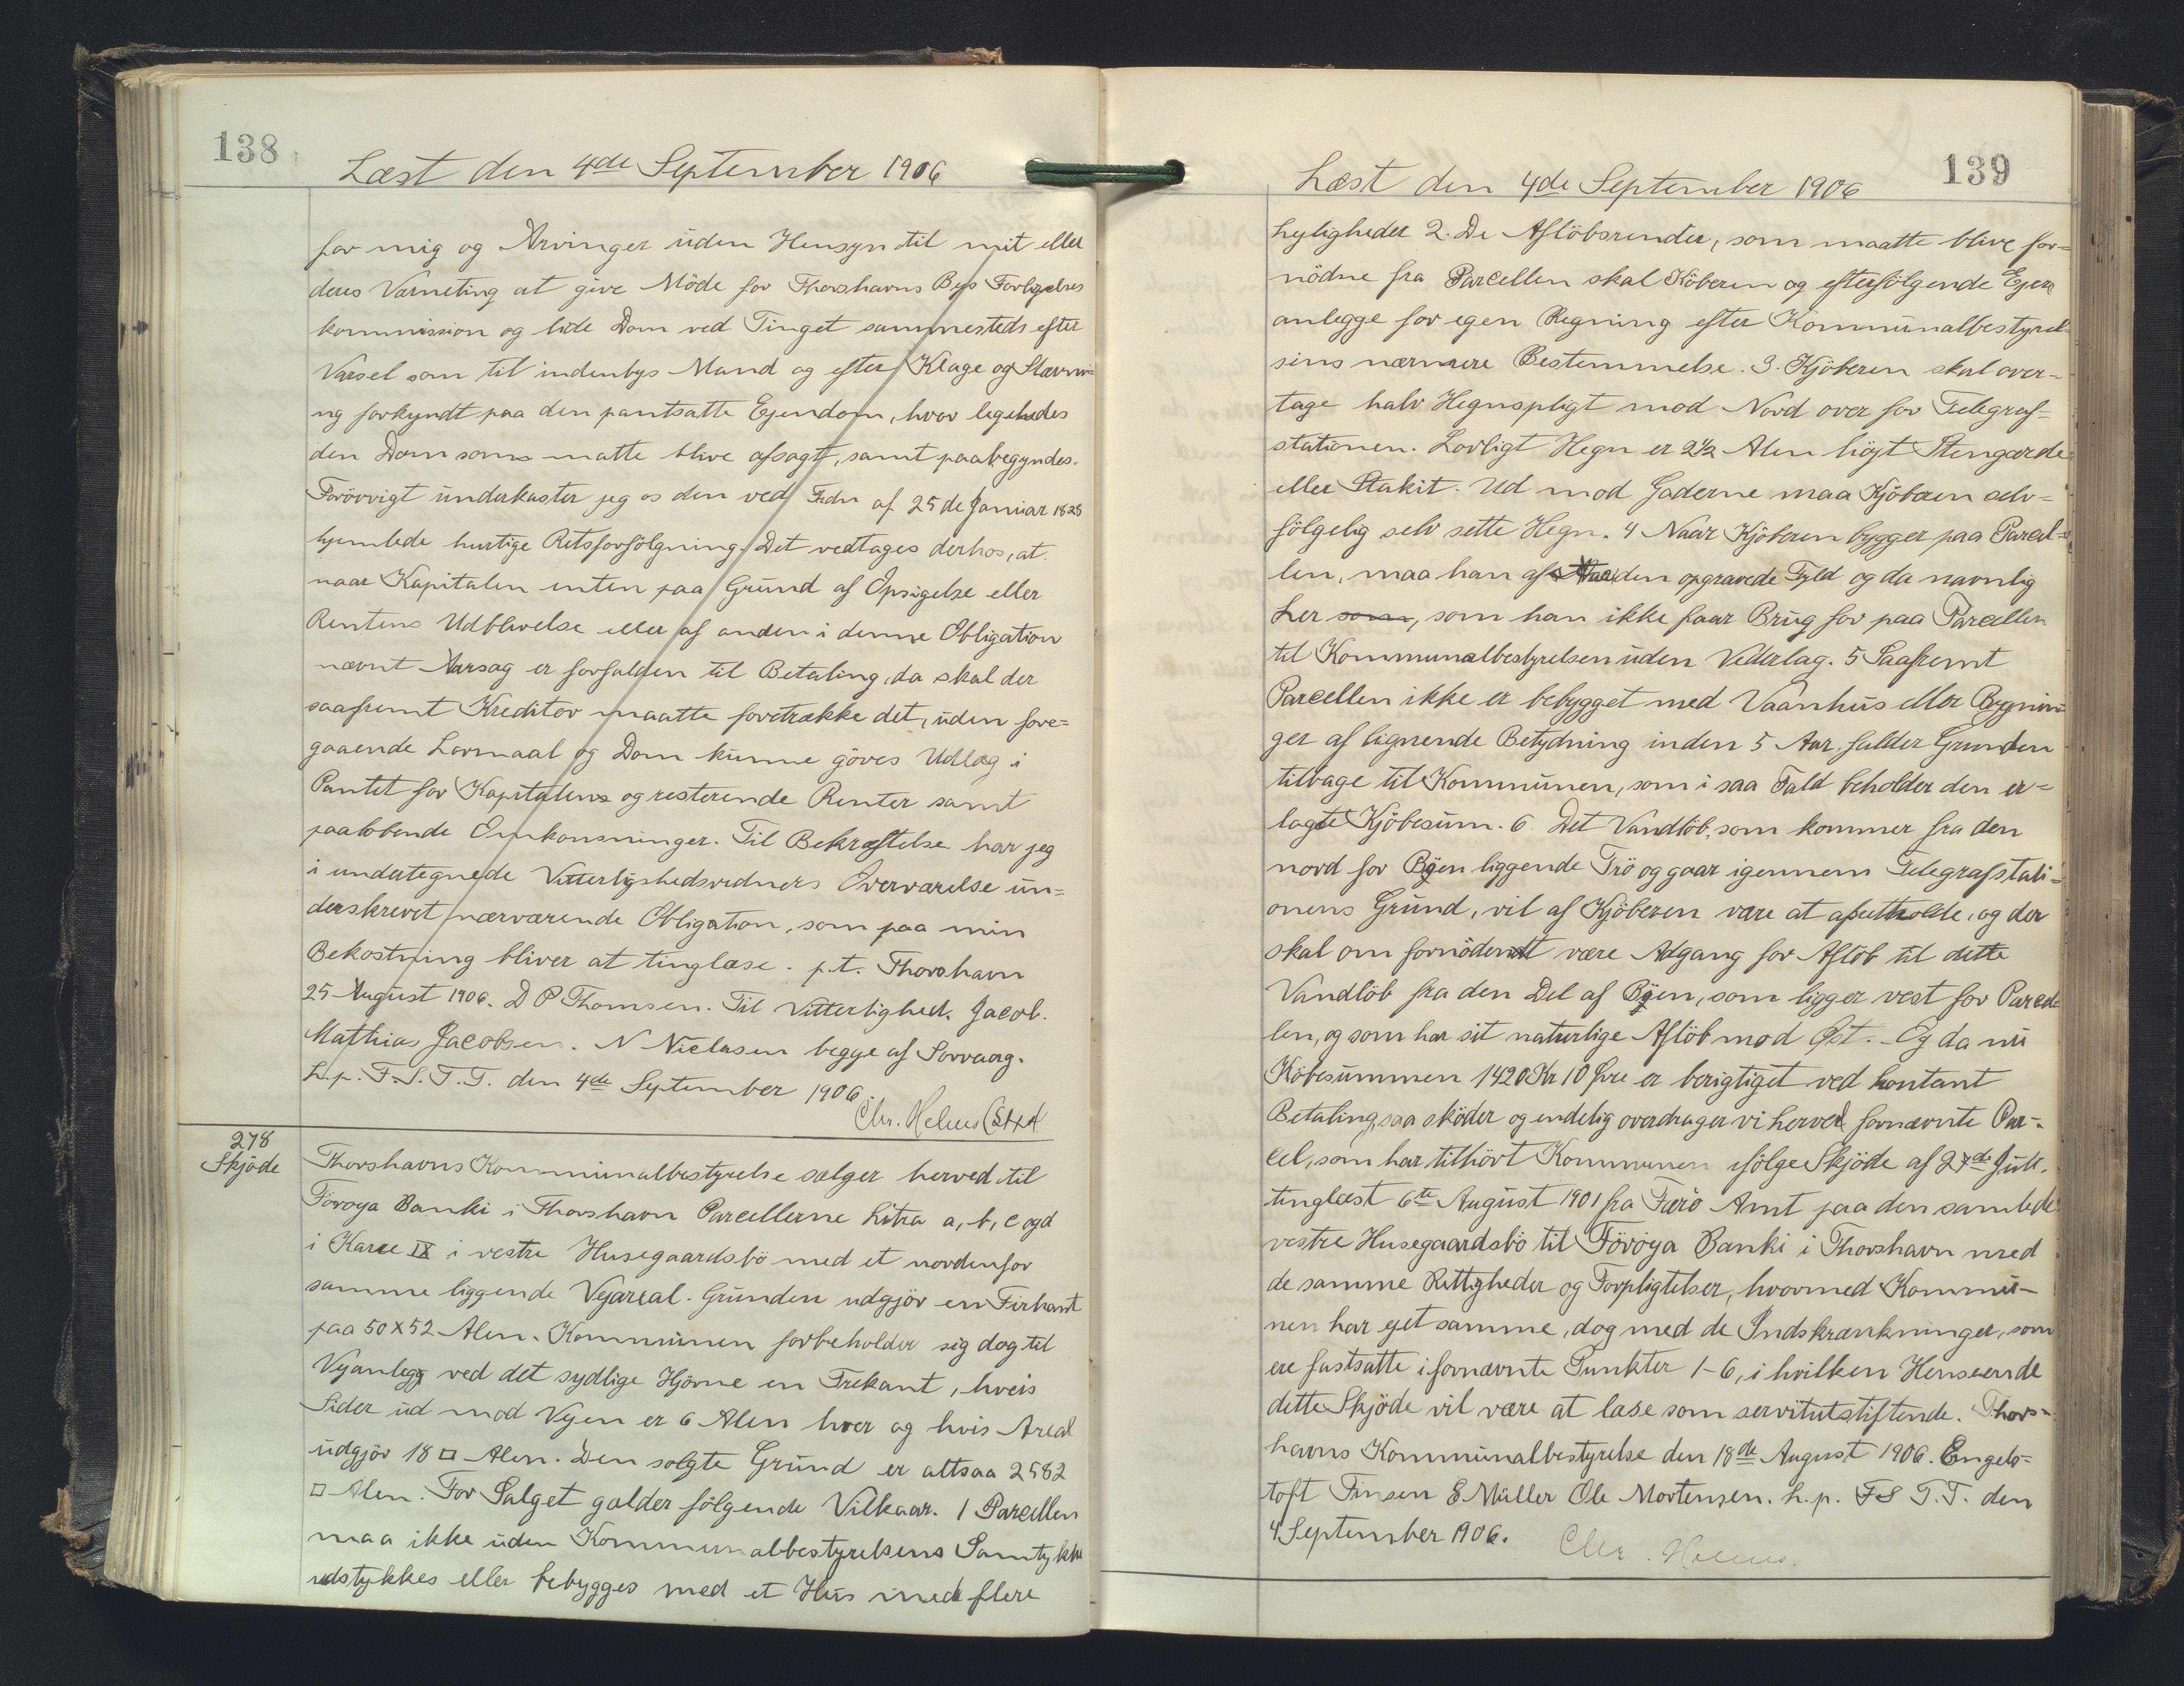 138
Læst den 4de September 1906
for mig og Arvinger uden Hensyn til mit eller
deres Værneting at give Möde for Thorshavns Bys Forligelses
kommission og lide Dom ved Tinget sammesteds efter
Varsel som til indenbys Mand og efter Klage og Stævni=
ng forkyndt paa den pantsatte Ejendom, hvor ligeledes
den Dom som matte blive afsagt, samt paabegyndes.
Forövvigt underkaster jeg os den ved Frdn af 25de Januar 1828
hjemlede hurtige Retsforfölgning. Det vedtages derhos, at
naar Kapitalen enten paa Grund af Opsigelse eller
Rentens Udblivelse eller af anden i denne Obligation
nævnt Aarsag er forfalden til Betaling, da skal der
saafremt Kreditor maatte foretrække det, uden fore=
gaaende Lovmaal og Dom kunne göres Udlæg i
Pantet for Kapitalens og resterende Renter samt
paalöbende Omkonsninger. Til Bekræftelse har jeg
i undertegnede Vitterlighedsvidners Overværelse un=
derskrevet nærværende Obligation, som paa min
Bekostning bliver at tinglæse. p.t. Thorshavn
25 August 1906. D P Thomsen. Til Vitterlighed. Jacob.
Mathias Jacobsen. N Niclasen begge af Sorvaag.
L.p. F.S.T.T. den 4de September 1906.
Chr. Helms
278
Skjöde
Thorshavns Kommunalbestyrelse sælger herved til
Föroya Banki i Thorshavn Parcellerne Litra a, b, c og d
i Karre IX i vestre Husegaardsbö med et nordenfor
samme liggende Vejareal. Grunden udgjör en Firkant
paa 50x52 Alen. Kommunen forbeholder sig dog til
Vejanlegg ved det sydlige Hjörne en Trekant, hveis
Sider ud mod Vejen er 6 Alen hver og hvis Areal
udgjör 18 □ Alen. Den solgte Grund er altsaa 2582
□ Alen. For Salget gælder fölgende Vilkaar. 1 Parcellen
maa ikke uden Kommunalbestyrelsens Samtykke
udstykkes eller bebygges med et Hus med flere
139
Læst den 4de September 1906
Lejligheder 2. De Aflöbsrender, som maatte blive for=
nödne fra Parcellen skal Köberen og efterfölgende Ejere
anlegge for egen Regning efter Kommunalbestyrel=
sens nærmere Bestemmelse. 3. Kjöberen skal over=
tage halv Hegnspligt mod Nord over for Telegraf=
stationen. Lovligt Hegn er 2½ Alen höjt Stengærde
eller Stakit. Ud mod Gaderne maa Kjöberen selv=
fölgelig selv sette Hegn. 4 Naar Kjöberen bygger paa Parcel=
len, maa han af den opgravede Fyld og da navnlig
Ler som, som han ikke faar Brug for paa Parcellen
til Kommunalbestyrelsen uden Vederlag. 5 Saafremt
Parcellen ikke er bebygget med Vaanhus eller Bygnin=
ger af lignende Betydning inden 5 Aar, falder Grunden
tilbage til Kommunen, som i saa Fald beholder den er=
lagte Kjöbesum. 6. Det Vandlöb, som kommer fra den
nord for Byen liggende Trö og gaar igennem Telegrafstati=
onens Grund, vil af Kjöberen være at , og der
skal om fornödendt være Adgang for Aflöb til dette
Vandlöb fra den Del af Byen, som ligger vest for Parcel
len, og som har sit naturlige Aflöb mod Øst. Og da nu
Köbesummen 1420 Kr 10 Öre er berigtiget ved kontant
Betaling, saa sköder og endelig overdrager vi herved fornævnte Par=
cel, som har tilhört Kommunen ifölge Skjöde af 27de Juli
tinglæst 6te August 1901 fra Færö Amt paa den samlede
vestre Husegaardsbö til Föroya Banki i Thorshavn med
de samme Rettigheder og Forpligtelser, hvormed Kommu=
nen har ejet samme, dog med de Indskrænkninger, som
ere fastsatte i fornævnte Punkter 1-6, i hvilken Henseende
dette Skjöde vil være at læse som servitutstiftende. Thors=
havns Kommunalbestyrelse den 18de August 1906. Engels=
toft Finsen E Müller Ole Mortensen. L.p. FS T.T. den
4 September 1906.
Chr. Helms.